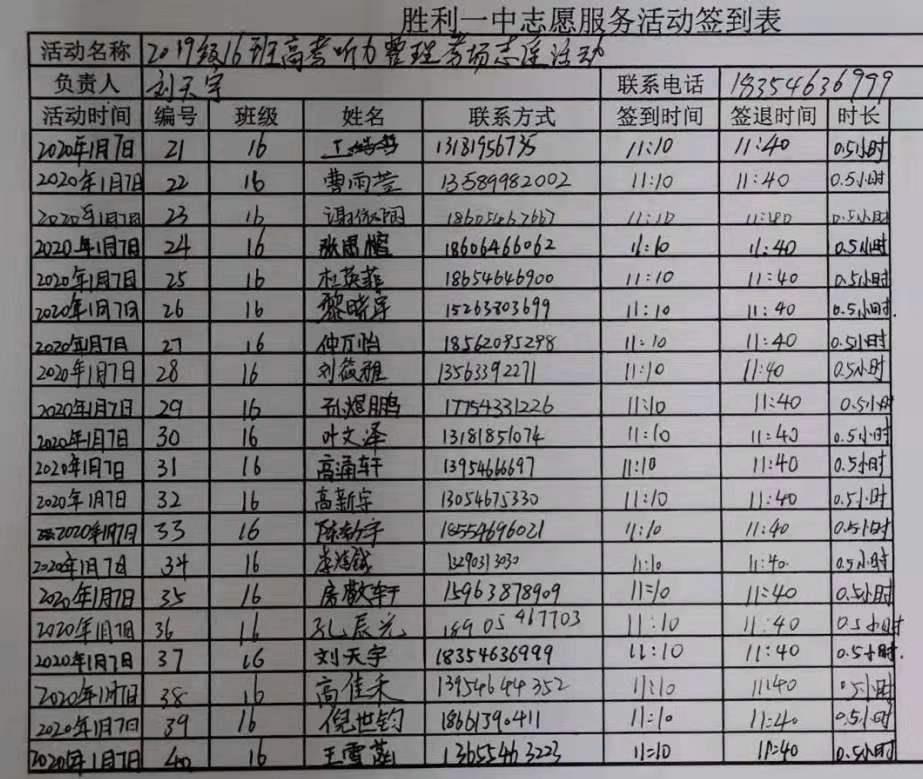 胜利一中志愿服务活动签到表
活动名称 2019级16班高考听力整理考场志愿活动
负责人 刘天宇 联系电话 18354636999
活动时间 编号 班级 姓名 联系方式 签到时间 签退时间 时长
2020年1月7日 21 16 13181956735 11:10 11:40 0.5小时
2020年1月7日 22 16 曹雨萱 13589982002 11:10 11:40 0.5小时
2020年1月7日 23 16 11:10 11:40 0.5小时
2020年1月7日 24 16 18606466062 11:10 11:40 0.5小时
2020年1月7日 25 16 杜英菲 18654646900 11:10 11:40 0.5小时
2020年1月7日 26 16 黎晓军 15263803699 11:10 11:40 0.5小时.
2020年1月7日 27 16 仲万怡 18562095298 11:10 11:40 0.5小时
2020年1月7日 28 16 刘筱雅 13563392271 11:10 11:40 0.5小时
2020年1月7日 29 16 孙煜鹏 17754331226 11:10 11:40 0.5小时
2020年1月7日 30 16 叶文泽 13181851074 11:10 11:40 0.5小时
2020年1月7日 31 16 高涌轩 1395466697 11:10 11:40 0.5小时
2020年1月7日 32 16 高新宇 13054675330 11:10 11:40 0.5小时
2020年1月7日 33 16 18554696021 11:10 11:40 0.5小时
2020年1月7日 34 16 11:10 11:40 0.5小时
2020年1月7日 35 16 房敬轩 15963878909 11=10 11=40 0.5小时
2020年1月7日 36 16 孔辰元 18905467703 11:10 11:40 0.5小时
2020年1月7日 37 16 刘天宇 18354636999 11:10 11:40 0.5小时.
2020年1月7日 38 16 高佳禾 13954644352 11:10 11:40 0.5小时
2020年1月7日 39 16 倪世钧 18661390411 11:10 11:40 0.5小时
2020年1月7日 40 16 王雪菡 13655463223 11=10 11=40 0.5小时